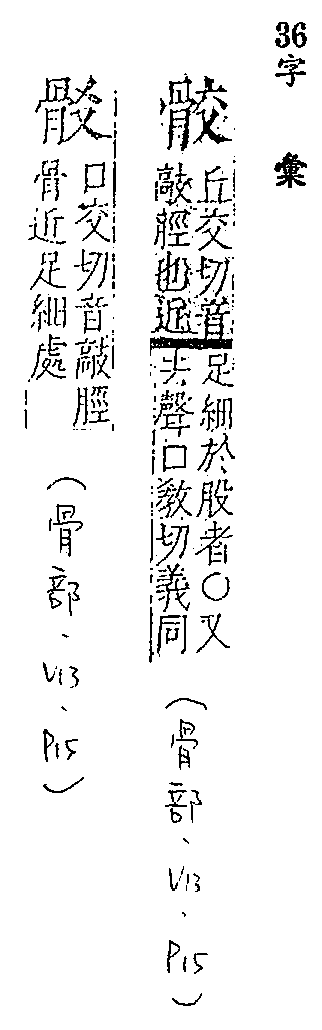 36字彙
骹
丘交切音
敲脛也近
足細於股者○又
去聲口教切義同
(骨部、V13、P15)
骹
口交切音敲脛
骨近足細處
(骨部、V13、P15)